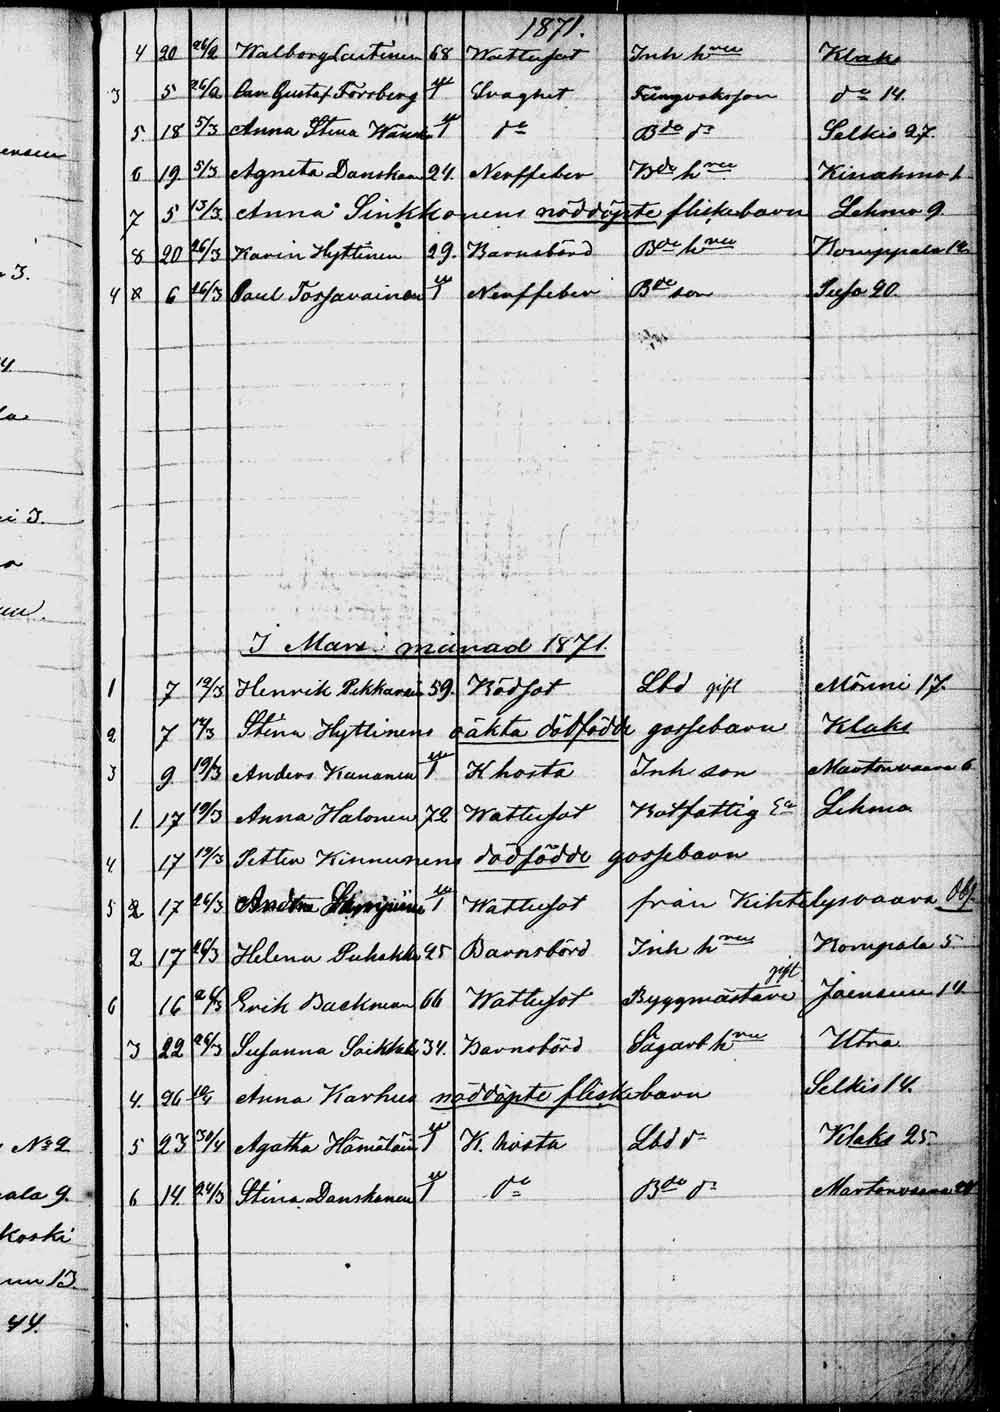 1871.
4 20 26/2 Walborg Lautinen 68 Wattusot Inh hru Klaks
3 5 26/2 Carl Gustaf Forsberg Svaghet Fångvaktson do 14.
5. 18 5/3 Anna Stina do Bde dr Selkis 27.
6 19 5/3 Agneta Danskanen 24. Nerffeber Bde hru Kinahmo 1
7 5 13/3 Anna Sinkkonens nöddöpte flickebarn Lehmo 9.
8 20 26/3 Karin Hyttinen 29. Barnsbörd Bde hru Komppala 12
4 6 26/3 Paul Torfvainen Nerffeber Bde son 20.
I Mars månad 1871.
1 7 12/3 Henrik Pekkarinen 59. Rödsot Lbd gift Mönni 17.
2 7 Stina Hyttinens oäkta dödfödde gossebarn Klaks
3 9 19/3 Anders Kananen K hosta Inh son Martonvaara 6
1. 17 19/3 Anna Halonen 72 Wattusot Rotfattig Ea Lehmo
4 17 19/3 Petter Kinnunens dödfödde gossebarn
5 2 17 26/3 Wattusot från Kihtelysvaara Obs.
2 17 26/3 Helena Puhakka 25 Barnsbörd Inh hru Kompala 5
6 16 26/3 Erik Backman 66 Wattusot Byggmästare gift Joensuu 14
3 22 26/3 Susanna Soikkeli 34. Barnsbörd Sågarb hru Utra
4. 26 Anna Karhus nöddöpte flickebarn Selkis 14.
5 23 30/4 Agatha Hämäläin K. hosta Lbd dr Klaks 25.
6 14. 24/3 Stina Danskanen do Bde dr Martonvaara
3.
i 3.
No 2
ala 9.
koski
13.
44.